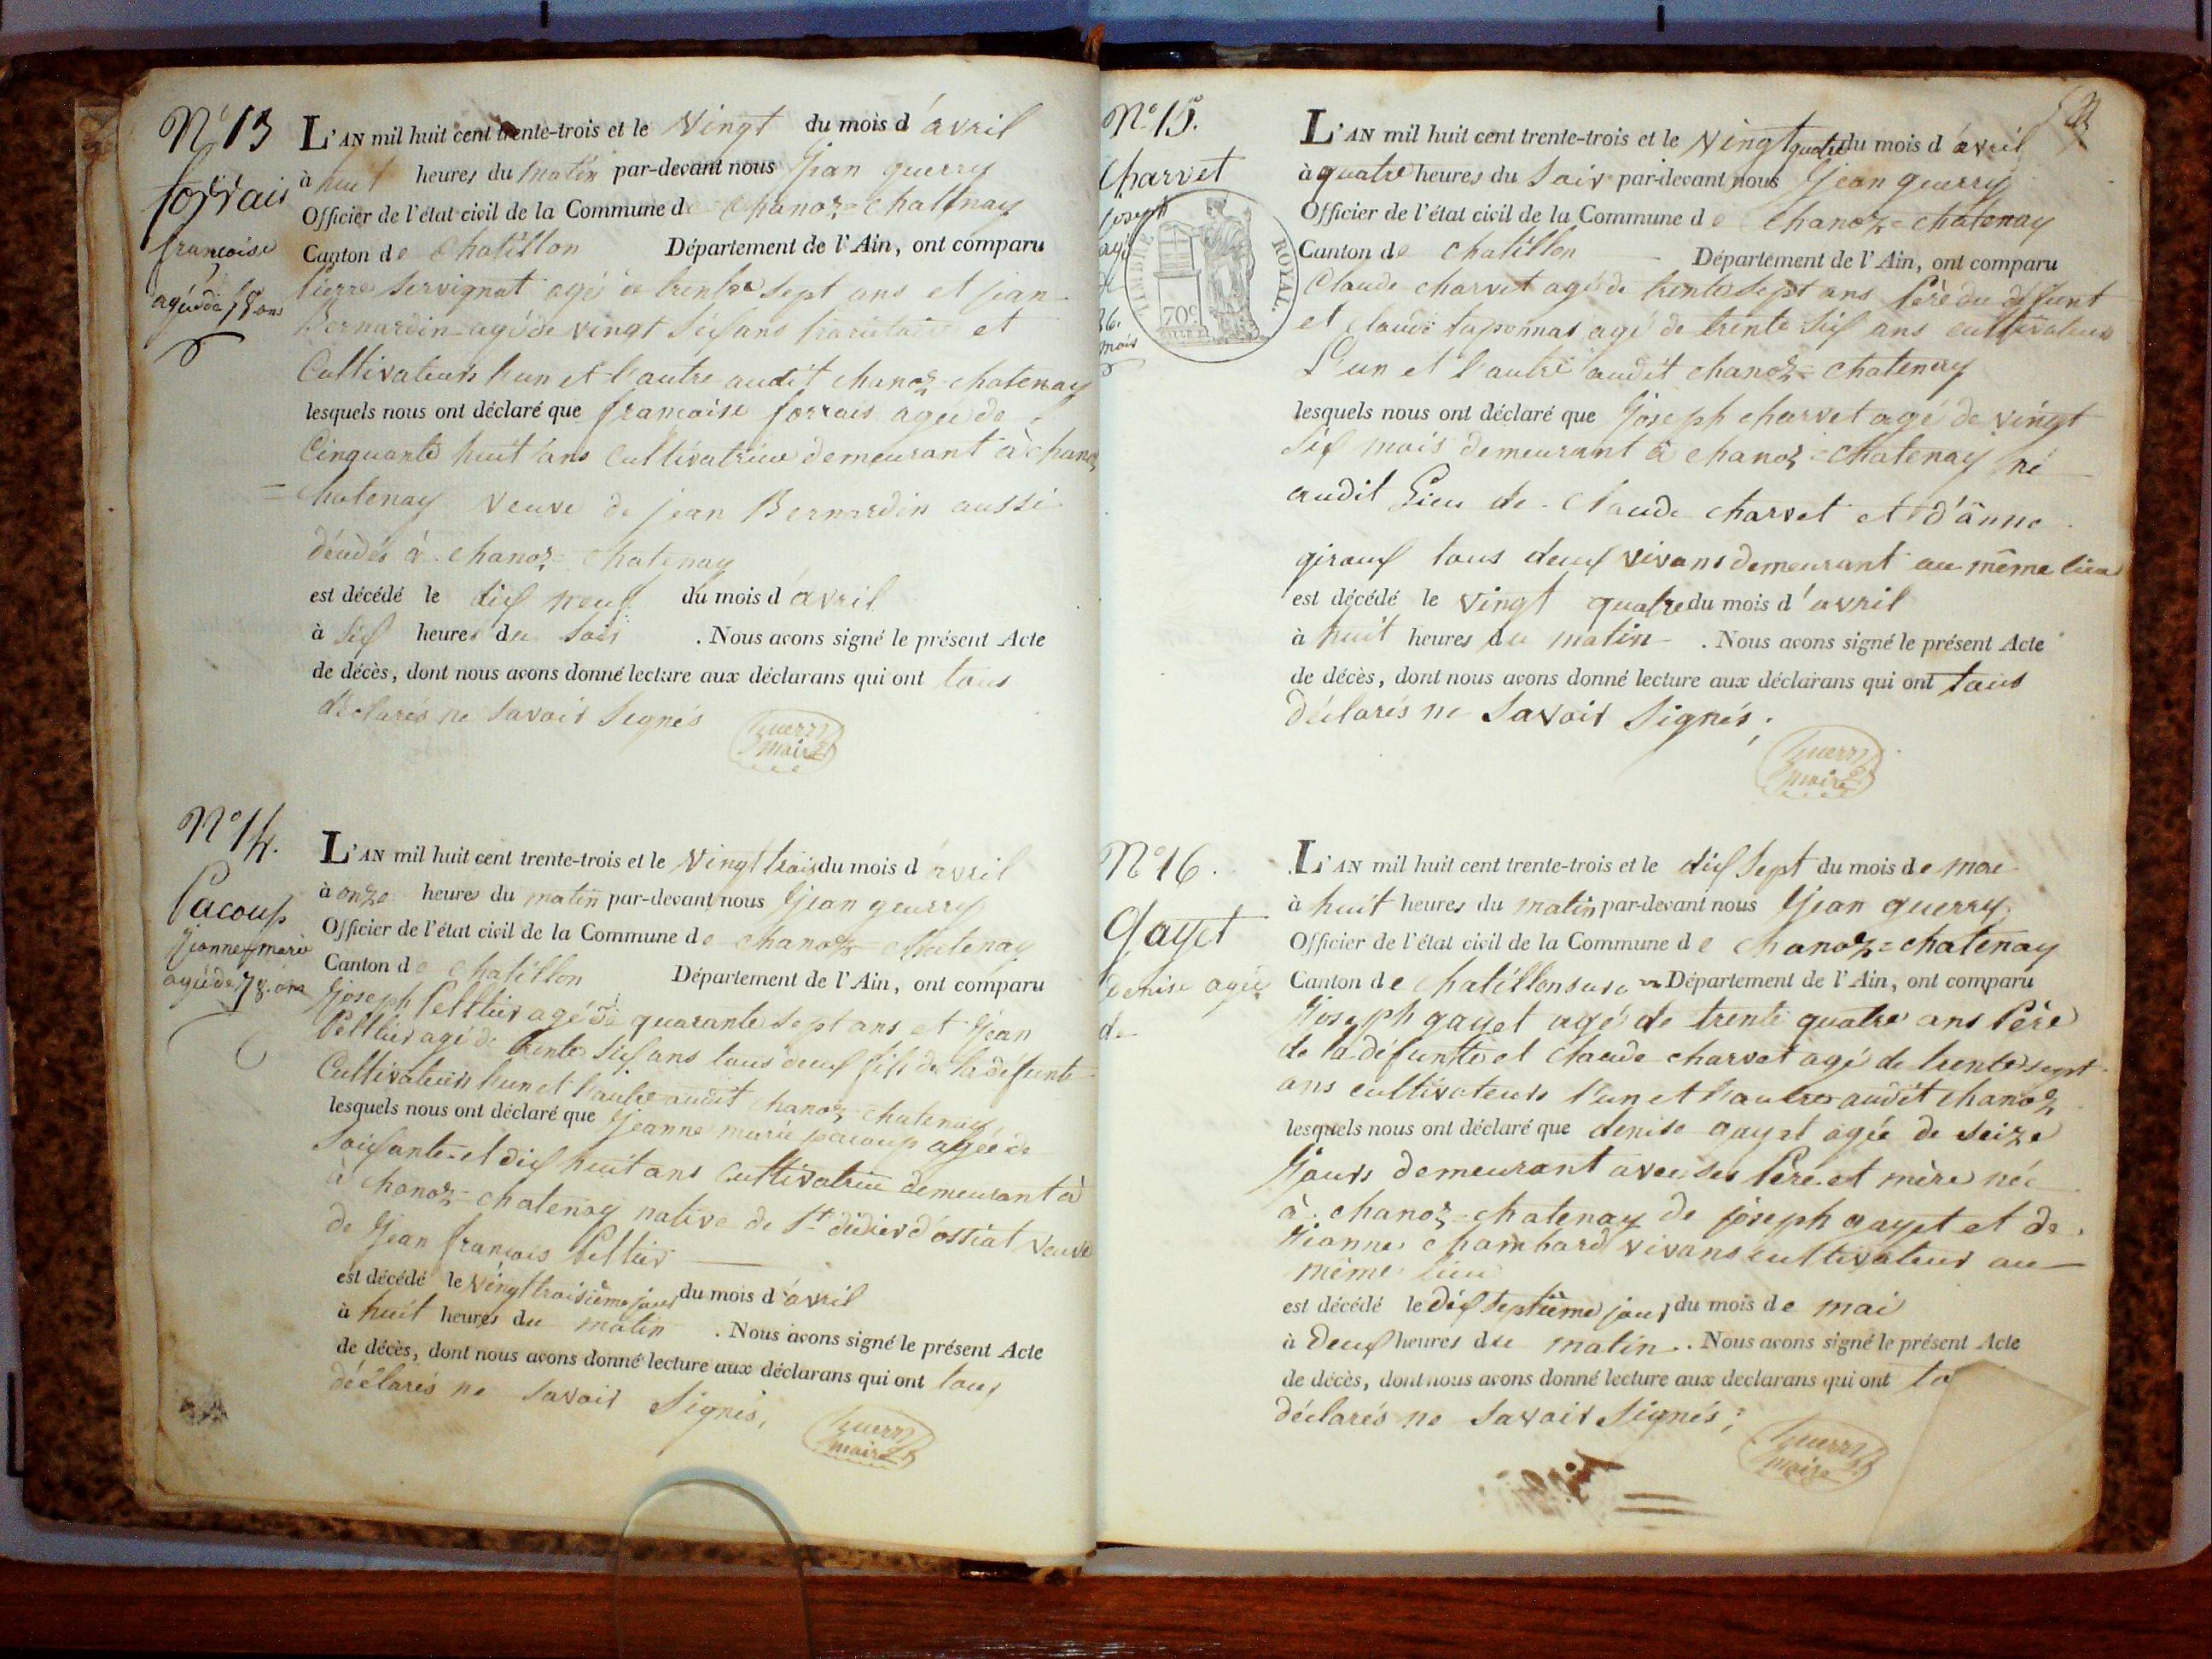 N° 13
forrais
françoise
agée de 58 ans
L'AN mil huit cent trente-trois et le Vingt du mois d'avril
à huit heures du matin par-devant nous Jean guerry
Officier de l'état civil de la Commune de chanoz=chatenay
Canton de Chatillon Département de l'Ain, ont comparu
Pierre Servignat agé de trente sept ans et jean
Bernardin agé de vingt six ans et
Cultivateurs l'un et l'autre audit chanoz chatenay
lesquels nous ont déclaré que francoise forrais agée de
Cinquante huit ans Cultivatrice demeurant à chanoz
=Chatenay Veuve de jean Bernardin aussi
décédés à chanoz=Chatenay
est décédé le dix neuf du mois d'avril
à six heures du soir . Nous avons signé le présent Acte
de décès, dont nous avons donné lecture aux déclarans qui ont tous
déclarés ne savoir signés
Guerry
maire
N° 14.
Pacoup
Jeanne marie
agée de 78. ans
L'AN mil huit cent trente-trois et le Vingt trois du mois d'avril
à onze heures du matin par-devant nous Jean guerry
Officier de l'état civil de la Commune de chanoz=chatenay
Canton de Chatillon Département de l'Ain, ont comparu
Joseph Pelltier agé de quarante sept ans et Jean
Pelltier agé de trente six ans tous deux fils de la défunte
Cultivateurs l'un et l'autre audit chanoz=chatenay
lesquels nous ont déclaré que Jeanne marie pacoup agée de
Soixante et dix huit ans Cultivatrice demeurant à
à chanoz=chatenay native de St didier d'ossiat Veuve
de Jean françois Peltier
est décédé le Vingt troisième jour du mois d'avril
à huit heures du matin . Nous avons signé le présent Acte
de décès, dont nous avons donné lecture aux déclarans qui ont tous
déclarés ne savoir Signés,
Guerry
maire
N° 15.
Charvet
joseph
agé
de
26.
mois
TIMBRE ROYAL
70c
L'AN mil huit cent trente-trois et le Vingt quatre du mois d'avril
à quatre heures du Soir par-devant nous Jean guerry
Officier de l'état civil de la Commune de Chanoz=chatenay
Canton de chatillon Département de l'Ain, ont comparu
Claude charvet agé de trente sept ans Père du défunt
et Claude taponnas agé de trente six ans cultivateurs
L'un et l'autre audit chanoz=chatenay
lesquels nous ont déclaré que Joseph charvet agé de vingt
six mois demeurant à chanoz=chatenay né
audit Lieu de Claude charvet et d'anne
giroux tous deux vivans demeurant au même lieu
est décédé le Vingt quatre du mois d'avril
à huit heures du matin . Nous avons signé le présent Acte
de décès, dont nous avons donné lecture aux déclarans qui ont tous
déclarés ne Savoir Signés;
Guerry
maire
N° 16.
Gayet
denise agée
de
L'AN mil huit cent trente-trois et le dix Sept du mois de mai
à huit heures du matin par-devant nous Jean guerry
Officier de l'état civil de la Commune de chanoz=chatenay
Canton de Chatillon Département de l'Ain, ont comparu
Joseph gayet agé de trente quatre ans Père
de la défunte et Claude charvet agé de trente sept
ans cultivateurs l'un et l'autre audit chanoz
lesquels nous ont déclaré que denise gayet agée de seize
Jours demeurant avec ses Père et mère née
à chanoz=chatenay de joseph gayet et de
Jeanne chambard vivans cultivateur au
même lieu
est décédé le dix septième jour du mois de mai
à deux heures du matin . Nous avons signé le présent Acte
de décès, dont nous avons donné lecture aux declarans qui ont to
déclarés ne Savoir Signés;
Guerry
maire